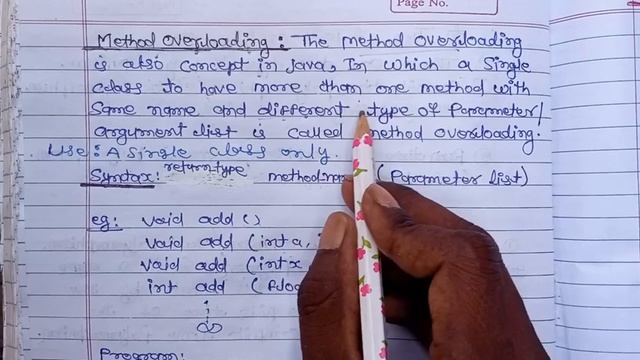 Page No.
Method Overloading : The method overloading
is also concept in java, In which a Single
class to have more than one method with
Same name and different type of Parameter/
argument list is called method overloading.
Use : A Single class only.
Syntax: returntype (Parameter list)
eg: void add ()
void add (int a,
void add (int x
int add
Program: